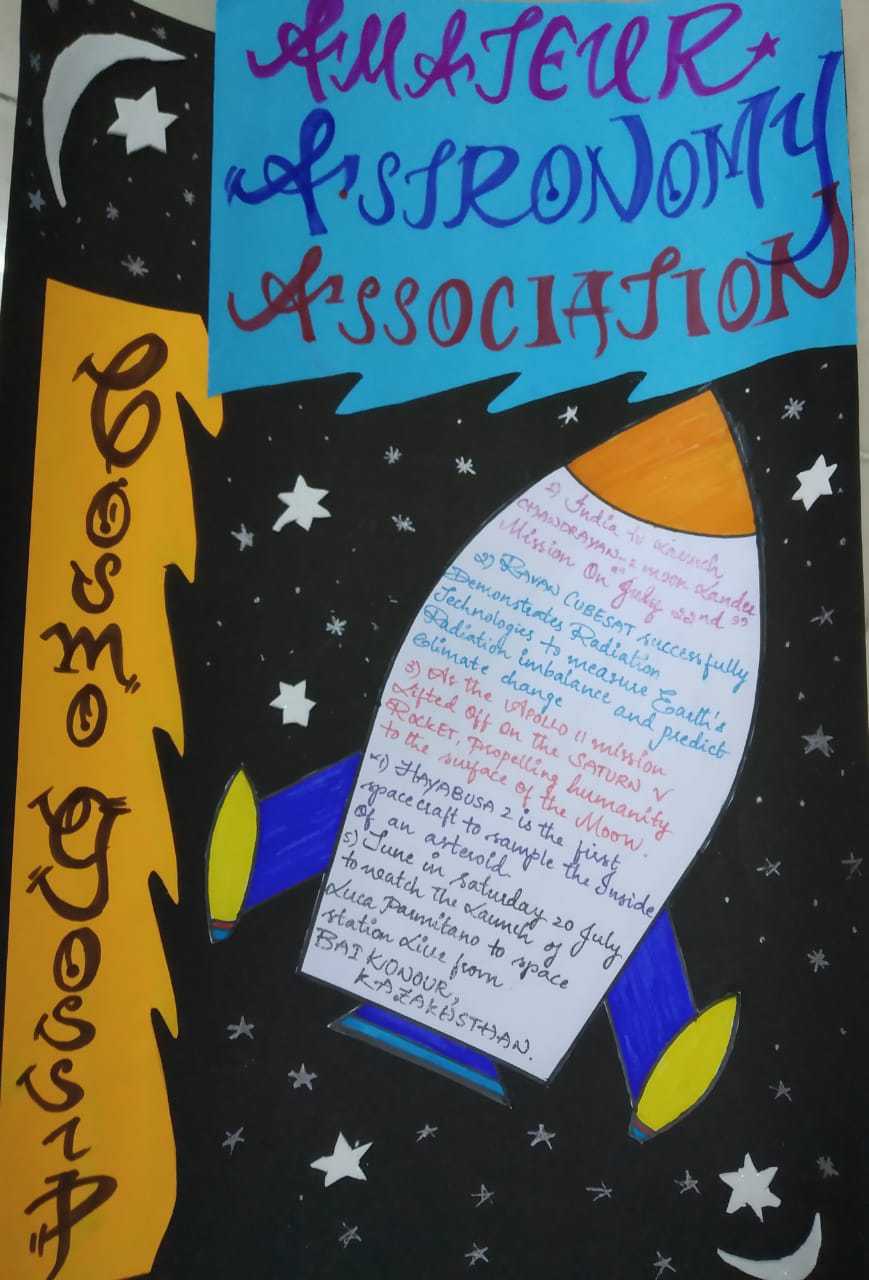 AMATEUR
ASTRONOMY
ASSOCIATION
COSMO GOSSIP
1) India to Launch
CHANDRAYAN-2 Moon Lander
Mission On "July 22nd"
2) RAVAN CUBESAT successfully
Demonstrates Radiation
Technologies to measure Earth's
Radiation imbalance and predict
Climate change
3) As the APOLLO 11 mission
Lifted Off On the SATURN V
ROCKET, Propelling humanity
to the surface of the Moon.
4) HAYABUSA 2 is the first
spacecraft to sample the Inside
Of an asteroid.
5) June in Saturday 20 July
to watch The Launch of
Luca Parmitano to space
station Live from
BAIKONOUR,
KAZAKHSTHAN.